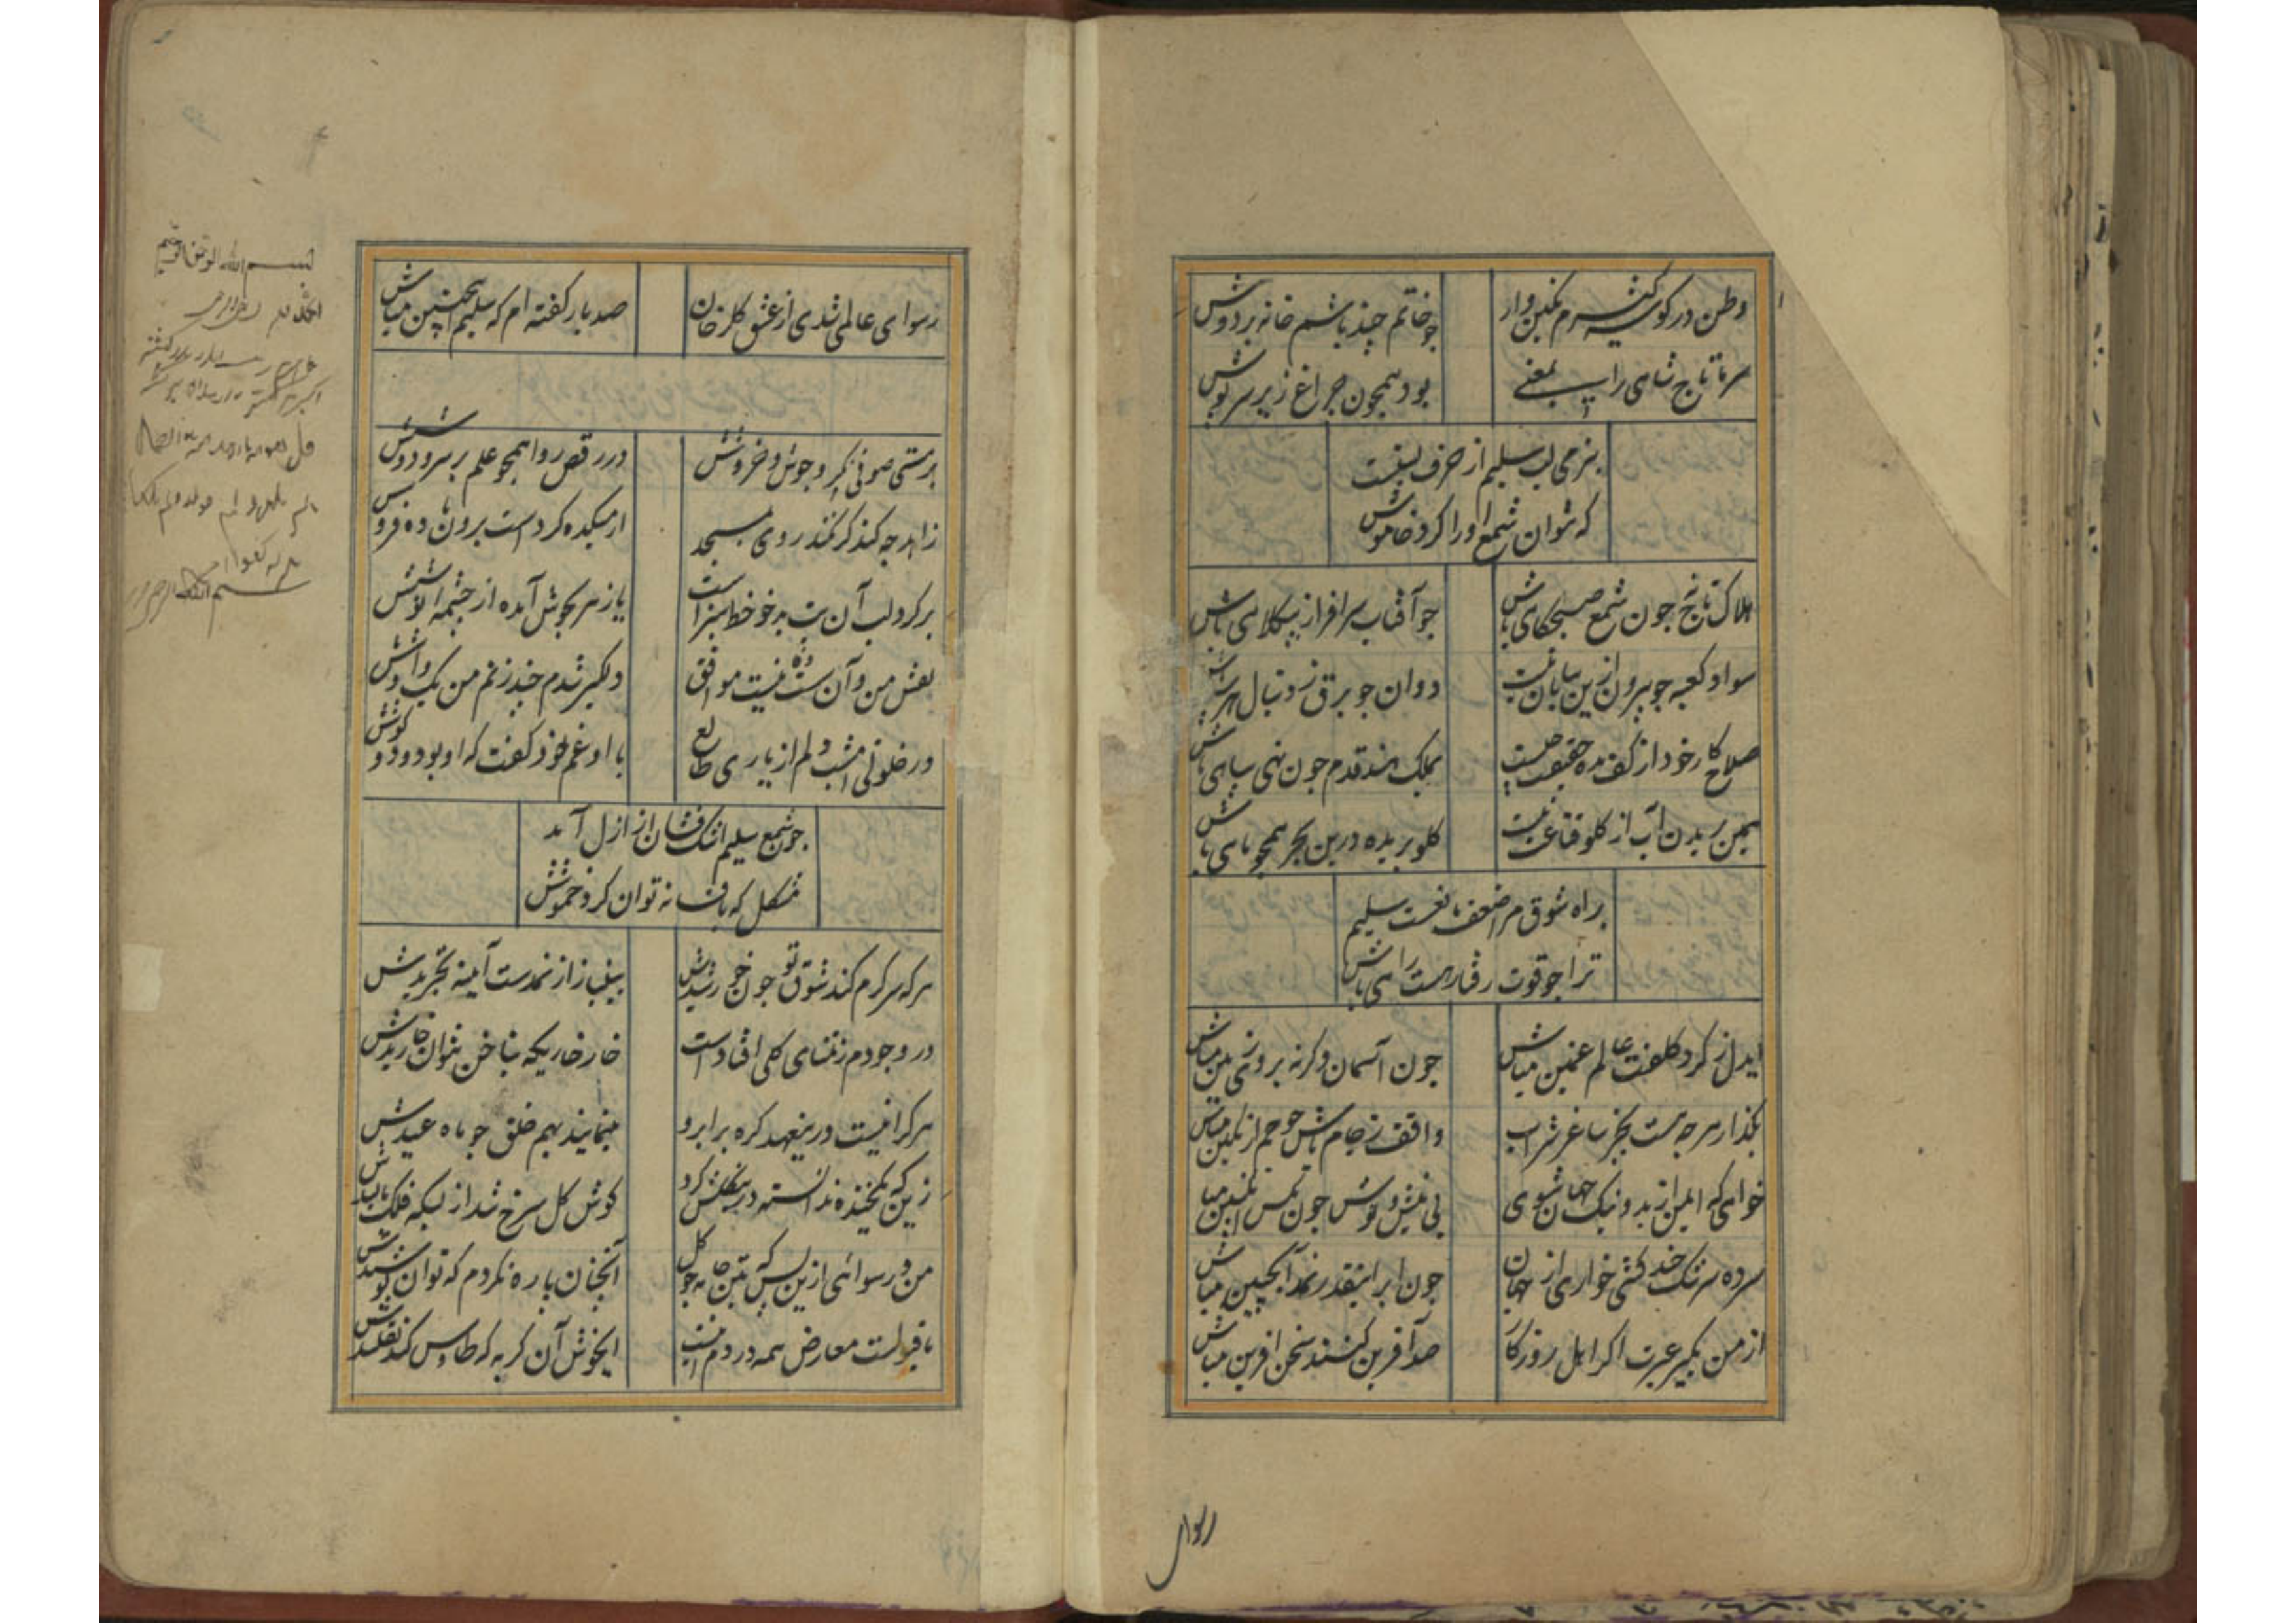 وطن در کوی شرم نگین وار
جو خاتم چند باشم خانه بر دوش
سر ما تاج شاهی را معنی
بود همچون چراغ زیر سرپوش
بزمی لب سلیم از حرف نیست
که نتوان شمع او را کرد خاموش
هلاک تاج جون شمع صبحکاهی باش
جو آفتاب سرافراز بیکلاهی باش
سواد کعبه جو بیرون ازین بیابان نیست
دوان جو برق ز دنبال هر سیاهی باش
صلاح کار خود از کف مده حقیقت چیست
بملک هند قدم جون نهی سپاهی باش
بریدن آب از کلو قناعت نیست
کلو بریده درین بحر همجو ماهی باش
براه شوق مرا ضعف مانعست سلیم
ترا جو قوت رفتار هست راهی باش
ایدل ز کرد کلفت عالم غمین مباش
جون آسمان وکرنه بروی زمین مباش
بکذار هر جه هست بجز ساغر شراب
واقف ز جام باش جو جم از نکین مباش
خواهی که ایمن از بد و نیک جهان شوی
بی نیش و نوش جون مکس انکبین مباش
سر ده سرشک چند کشی خواری از جهان
جون ابر اینقدر نمد آبچین مباش
از من بکیر عبرت اکر اهل روزکار
صد آفرین کنند سخن آفرین مباش
رسوای
رسوای عالمی شدی از عشق کلرخان
صد بار کفته ام که سلیم اینچنین مباش
بر مستی صوفی نکر و جوش و خروشش
در رقص ردا همجو علم بر سر دوشش
زاهد چه کند کر نکند روی بمسجد
از میکده کردست برون باده فروشش
بر کرد لب آن بت بدخو خط سبزاست
یا زهر بجوش آمده از چشمه نوشش
نقش من و آن مست نیست موافق
دلکیر شدم چند زنم من یک و او شش
در خلوتی امشب دلم از یاری طالع
با او غم خود کفت که او بود و دو کوشش
جون شمع سلیم اشک فشان از ازل آمد
مشکل که بافسانه توان کرد خموشش
هر که سرکرم کند شوق تو جون خورشیدش
بینیاز از نمدست آینه تجریدش
در وجودم ز تمنای کلی افتادست
خار خاریکه بناخن نتوان خاریدش
هر کرا نیست درینعهد کره بر ابرو
مینمایند بهم خلق جو ماه عیدش
زین که یکخنده ندانسته درین کلشن کرد
کوش کل سرخ شد از بسکه فلک مالیدش
من و رسوائی ازین پس که بتن جامه جو کل
آنچنان پاره نکردم که توان پوشیدش
نا قبولست معارض همه در دم
ایخوش آن کربه که طاوس کند تقلیدش
بسم الله الرحمن الرحیم